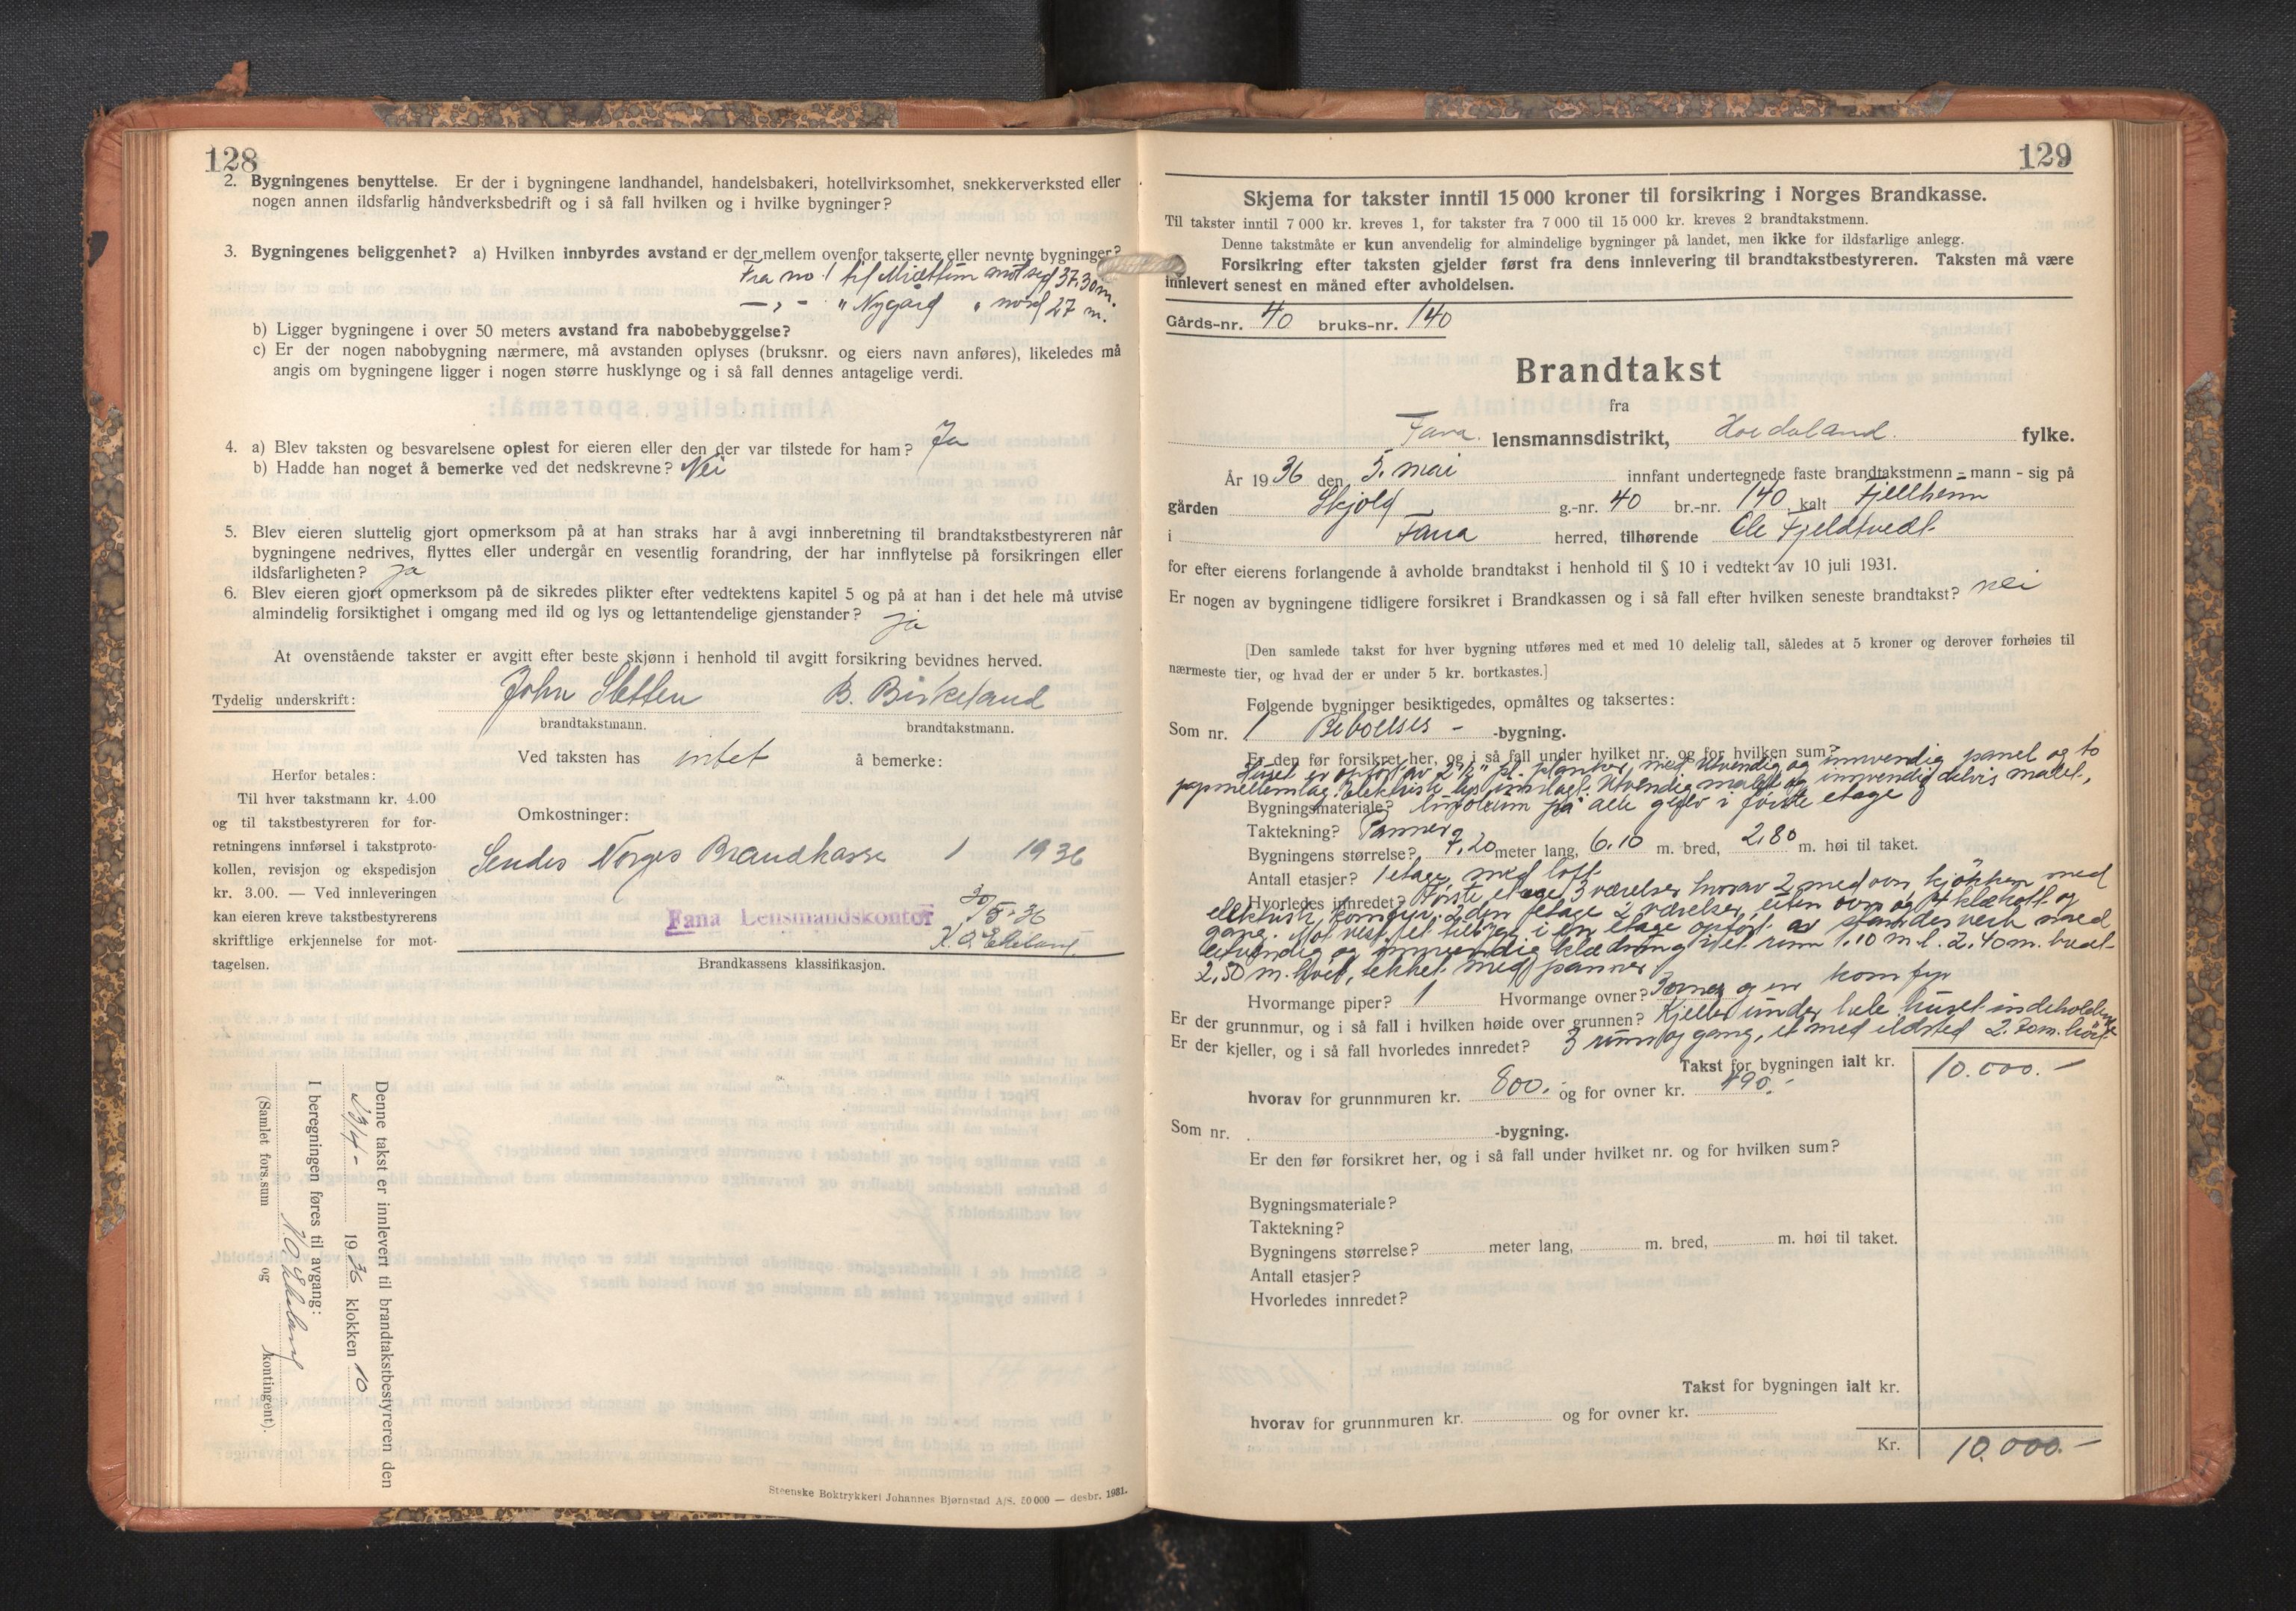 128
2. Bygningenes benyttelse. Er der i bygningene landhandel, handelsbakeri, hotellvirksomhet, snekkerverksted eller
nogen annen ildsfarlig håndverksbedrift og i så fall hvilken og i hvilke bygninger?
3. Bygningenes beliggenhet? a) Hvilken innbyrdes avstand er der mellem ovenfor takserte eller nevnte bygninger?
Fra no 1 til Midttun mot syd 37,30 m.
— „ — " Nygard " nord 27 m.
b) Ligger bygningene i over 50 meters avstand fra nabobebyggelse?
c) Er der nogen nabobygning nærmere, må avstanden oplyses (bruksnr. og eiers navn anføres), likeledes må
angis om bygningene ligger i nogen større husklynge og i så fall dennes antagelige verdi.
4. a) Blev taksten og besvarelsene oplest for eieren eller den der var tilstede for ham? Ja
b) Hadde han noget å bemerke ved det nedskrevne? Nei
5. Blev eieren sluttelig gjort opmerksom på at han straks har å avgi innberetning til brandtakstbestyreren når
bygningene nedrives, flyttes eller undergår en vesentlig forandring, der har innflytelse på forsikringen eller
ildsfarligheten? ja
6. Blev eieren gjort opmerksom på de sikredes plikter efter vedtektens kapitel 5 og på at han i det hele må utvise
almindelig forsiktighet i omgang med ild og lys og lettantendelige gjenstander? ja
At ovenstående takster er avgitt efter beste skjønn i henhold til avgitt forsikring bevidnes herved.
Tydelig underskrift: John Sletten B. Birkeland
brandtakstmann. brandtakstmann.
Ved taksten has intet å bemerke:
Herfor betales:
Til hver takstmann kr. 4.00
og til takstbestyreren for for-
retningens innførsel i takstproto-
kollen, revisjon og ekspedisjon
kr. 3.00. — Ved innleveringen
kan eieren kreve takstbestyrerens
skriftlige erkjennelse for mot-
tagelsen.
Omkostninger:
Sendes Norges Brandkasse 1 1936
20/5-36
Fana Lensmandskontor
Brandkassens klassifikasjon.
Denne takst er innlevert til brandtakstbestyreren den
1936 klokken 10
I beregningen føres til avgang:
(Samlet fors.sum og kontingent).
Steenske Boktrykkeri Johannes Bjørnstad A/S. 50 000 — desbr. 1931.
129
Skjema for takster inntil 15 000 kroner til forsikring i Norges Brandkasse.
Til takster inntil 7 000 kr. kreves 1, for takster fra 7 000 til 15 000 kr. kreves 2 brandtakstmenn.
Denne takstmåte er kun anvendelig for almindelige bygninger på landet, men ikke for ildsfarlige anlegg.
Forsikring efter taksten gjelder først fra dens innlevering til brandtakstbestyreren. Taksten må være
innlevert senest en måned efter avholdelsen.
Gårds-nr. 40 bruks-nr. 140
Brandtakst
fra
Fana lensmannsdistrikt, Hordaland fylke.
År 1936 den 5. mai innfant undertegnede faste brandtakstmenn - mann - sig på
gården Skjold g.-nr. 40 br.-nr. 140 kalt Fjellheim
i Fana herred, tilhørende Ole Fjeldtvedt
for efter eierens forlangende å avholde brandtakst i henhold til § 10 i vedtekt av 10 juli 1931.
Er nogen av bygningene tidligere forsikret i Brandkassen og i så fall efter hvilken seneste brandtakst? nei
[Den samlede takst for hver bygning utføres med et med 10 delelig tall, således at 5 kroner og derover forhøies til
nærmeste tier, og hvad der er under 5 kr. bortkastes.]
Følgende bygninger besiktigedes, opmåltes og taksertes:
Som nr. 1 Beboelses - -bygning.
Er den før forsikret her, og i så fall under hvilket nr. og for hvilken sum?
Huset er opført av 2½" pl. planker, med utvendig og innvendig panel og to
papmellemlag. Elektrisk lys innlagt. Utvendig malet og innvendig delvis malet,
Bygningsmateriale? linoleum på alle gulv i første etage
Taktekning? Panner
Bygningens størrelse? 7,20 meter lang, 6,10 m. bred, 2,80 m. høi til taket.
Antall etasjer? 1 etage med loft
Hvorledes innredet? Første etage 3 værelser hvorav 2 med ovn, kjøkken med
elektrisk komfyr. 2den etage 2 værelser, uten ovn og 4 klækott og
gang. Mot vest et tilbygg i en etage opført av standerverk med
utvendig og innvendig klædning, et rum 1.10 m l. 2,40 m. bredt
2,50 m. høit, tekket med panner
Hvormange piper? 1 Hvormange ovner? 3 ovner og en komfyr
Er der grunnmur, og i så fall i hvilken høide over grunnen? Kjeller under hele huset indeholdende
Er der kjeller, og i så fall hvorledes innredet? 3 rum og gang, et med ildsted 2.20 m. høit
Takst for bygningen ialt kr. 10.000.-
hvorav for grunnmuren kr. 800.- og for ovner kr. 490.-
Som nr. -bygning.
Er den før forsikret her, og i så fall under hvilket nr. og for hvilken sum?
Bygningsmateriale?
Taktekning?
Bygningens størrelse? meter lang, m. bred, m. høi til taket.
Antall etasjer?
Hvorledes innredet?
Takst for bygningen ialt kr.
hvorav for grunnmuren kr. og for ovner kr.
Kr. 10.000.-